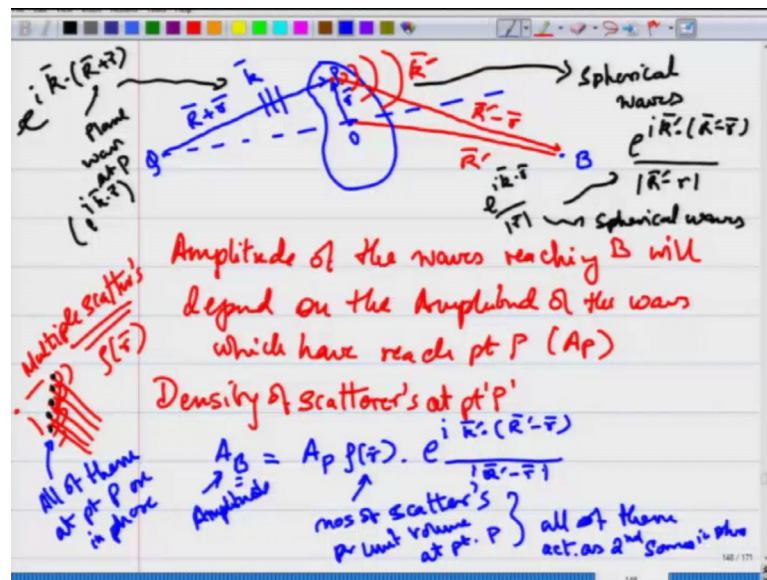 e^{i k̄·(R̄+r̄)}
Plane
wave
at P
(e^{i k̄·r̄})
R̄+r̄
k̄
Q
P
r̄
O
k̄'
R̄'-r̄
R̄'
B
Spherical
waves
e^{i k̄'·(R̄'-r̄)}
|R̄'-r|
e^{i k̄·r̄}
|r̄|
Spherical waves
Amplitude of the waves reaching B will
depend on the Amplitud of the waves
which have reach pt P (Ap)
Multiple scatter's
ρ(r̄)
Density of scatterer's at pt 'P'
A_B = A_P ρ(r̄) · e^{i k̄'·(R̄'-r̄)}
|R̄'-r̄|
Amplitude
All of them
at pt P are
in phase
nos of scatter's
per unit volume
at pt. P
all of them
act. as 2nd
140 / 171